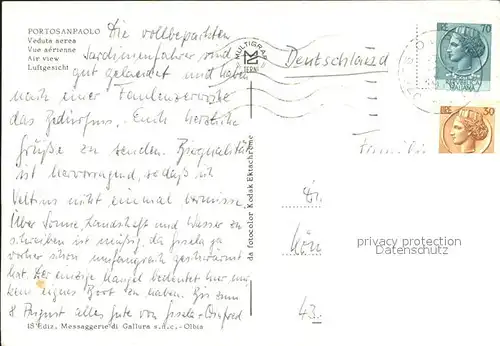 PORTOSANPAOLO
Veduta aerea
Vue aérienne
Air view
Luftgesicht
Die vollbepackten
Sardinienfahrer sind
gut gelandet und haben
nach einer Faulenzerwoche
das Bedürfnis, Euch herzliche
Grüße zu senden. Bierqualität
ist hervorragend, so daß ich
Veltins nicht einmal vermisse.
Über Sonne, Landschaft und Wasser zu
schreiben ist müßig, da Gisela ja
vorher schon umfangreich geschwärmt
hat. Der einzige Mangel bedeutet hier nur,
kein eigenes Boot zu haben. Bis zum
8. August alles Gute von Gisela +
IS Ediz. Messaggerie di Gallura s.n.c. - Olbia
da fotocolor Kodak Ektachrome
MULTIGRAF
TERNI
Deutschland
70
LIRE
30
LIRE
Familie
privacy protection
Datenschutz
43.